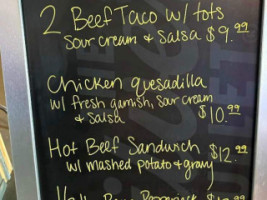 2 Beef Taco w/ tots
sour cream & salsa $9.99
Chicken quesadilla
w/ fresh garnish, sour cream
& salsa $10.99
Hot Beef Sandwich $12.99
w/ mashed potato & gravy